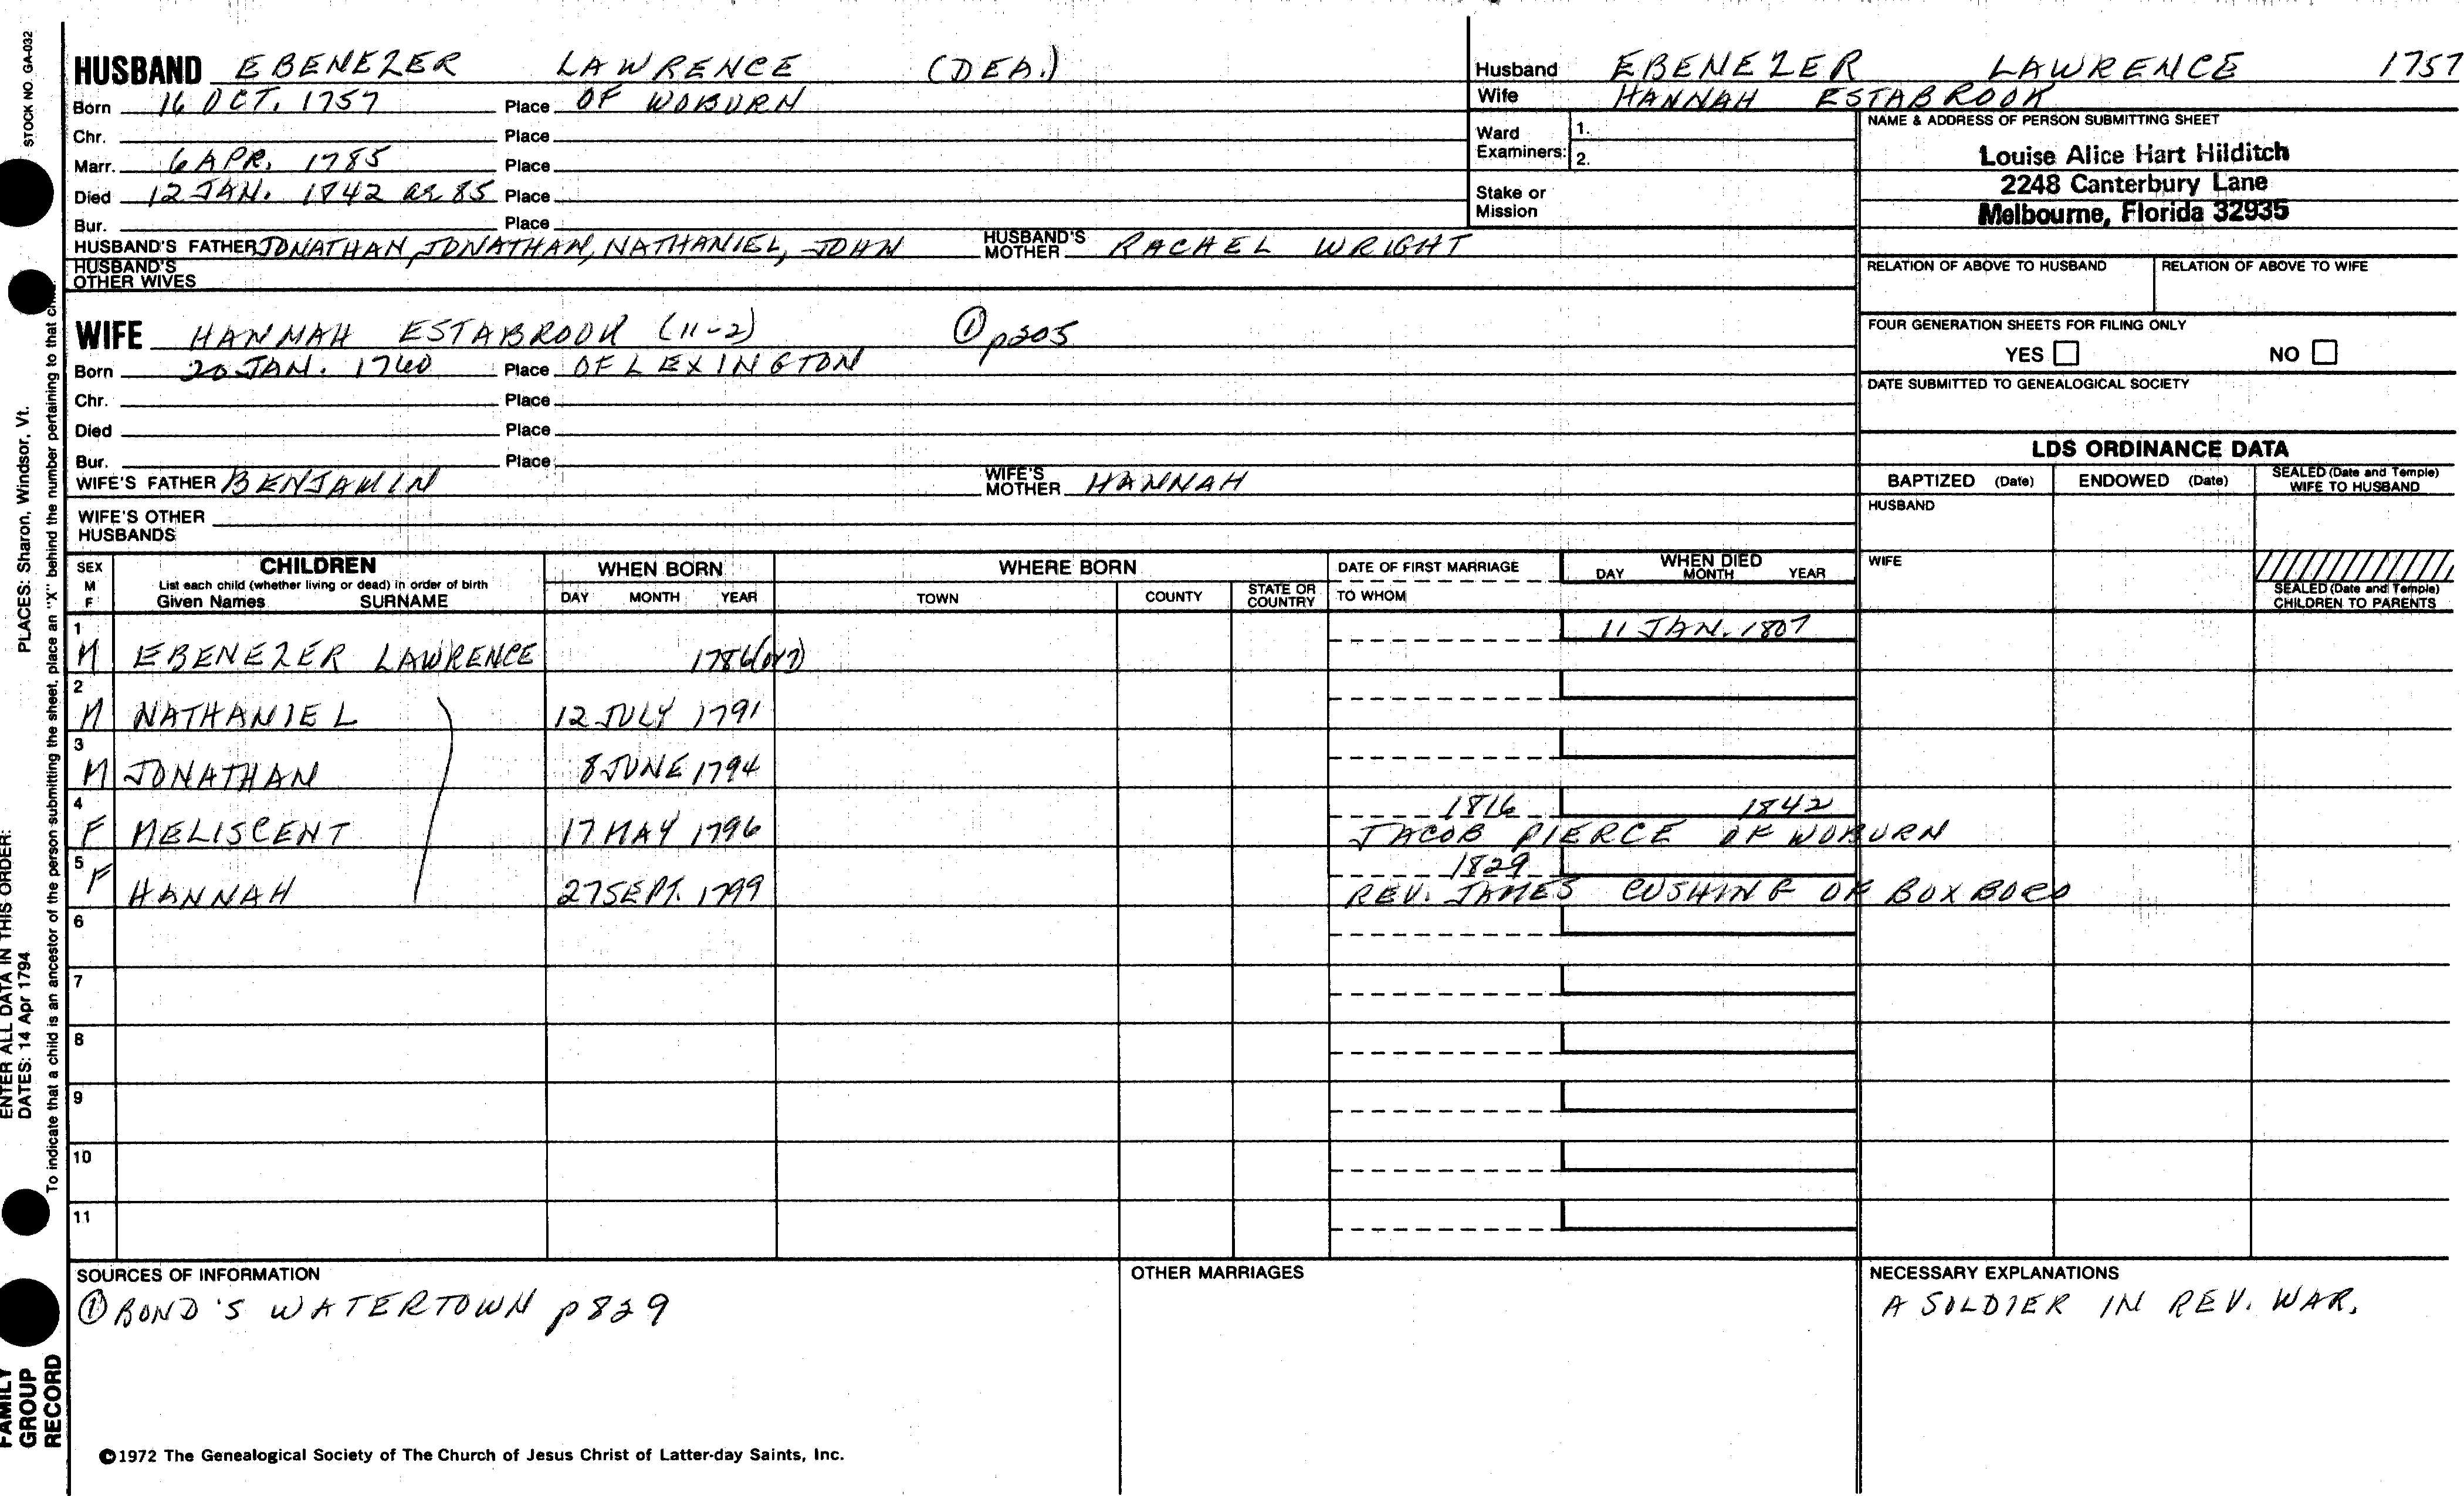 STOCK NO. GA-032
HUSBAND EBENEZER LAWRENCE (DEA.)
Born 16 OCT. 1757 Place OF WOBURN
Chr. Place
Marr. 6 APR. 1785 Place
Died 12 JAN. 1842 ae 85 Place
Bur. Place
HUSBAND'S FATHER JONATHAN, JONATHAN, NATHANIEL, JOHN HUSBAND'S MOTHER RACHEL WRIGHT
HUSBAND'S OTHER WIVES
WIFE HANNAH ESTABROOK (11-2) ① p205
Born 20 JAN. 1760 Place OF LEXINGTON
Chr. Place
Died Place
Bur. Place
WIFE'S FATHER BENJAMIN WIFE'S MOTHER HANNAH
WIFE'S OTHER HUSBANDS
Husband EBENEZER LAWRENCE 1757
Wife HANNAH ESTABROOK
Ward Examiners: 1.
2.
Stake or Mission
NAME & ADDRESS OF PERSON SUBMITTING SHEET
Louise Alice Hart Hilditch
2248 Canterbury Lane
Melbourne, Florida 32935
RELATION OF ABOVE TO HUSBAND RELATION OF ABOVE TO WIFE
FOUR GENERATION SHEETS FOR FILING ONLY
YES NO
DATE SUBMITTED TO GENEALOGICAL SOCIETY
LDS ORDINANCE DATA
BAPTIZED (Date) ENDOWED (Date) SEALED (Date and Temple) WIFE TO HUSBAND
HUSBAND
WIFE
SEALED (Date and Temple) CHILDREN TO PARENTS
SEX M F CHILDREN WHEN BORN WHERE BORN DATE OF FIRST MARRIAGE WHEN DIED
List each child (whether living or dead) in order of birth
Given Names SURNAME DAY MONTH YEAR TOWN COUNTY STATE OR COUNTRY TO WHOM DAY MONTH YEAR
1 11 JAN. 1807
M EBENEZER LAWRENCE 1786(or7)
2
M NATHANIEL 12 JULY 1791
3
M JONATHAN 8 JUNE 1794
4 1816 1842
F MELISCENT 17 MAY 1796 JACOB PIERCE OF WOBURN
5 1829
F HANNAH 27 SEPT. 1799 REV. JAMES CUSHING OF BOXBORO
6
7
8
9
10
11
SOURCES OF INFORMATION
① BOND'S WATERTOWN p829
OTHER MARRIAGES
NECESSARY EXPLANATIONS
A SOLDIER IN REV. WAR.
©1972 The Genealogical Society of The Church of Jesus Christ of Latter-day Saints, Inc.
FAMILY GROUP RECORD
ENTER ALL DATA IN THIS ORDER:
DATES: 14 Apr 1794
PLACES: Sharon, Windsor, Vt.
To indicate that a child is an ancestor of the person submitting the sheet, place an "X" behind the number pertaining to that child.